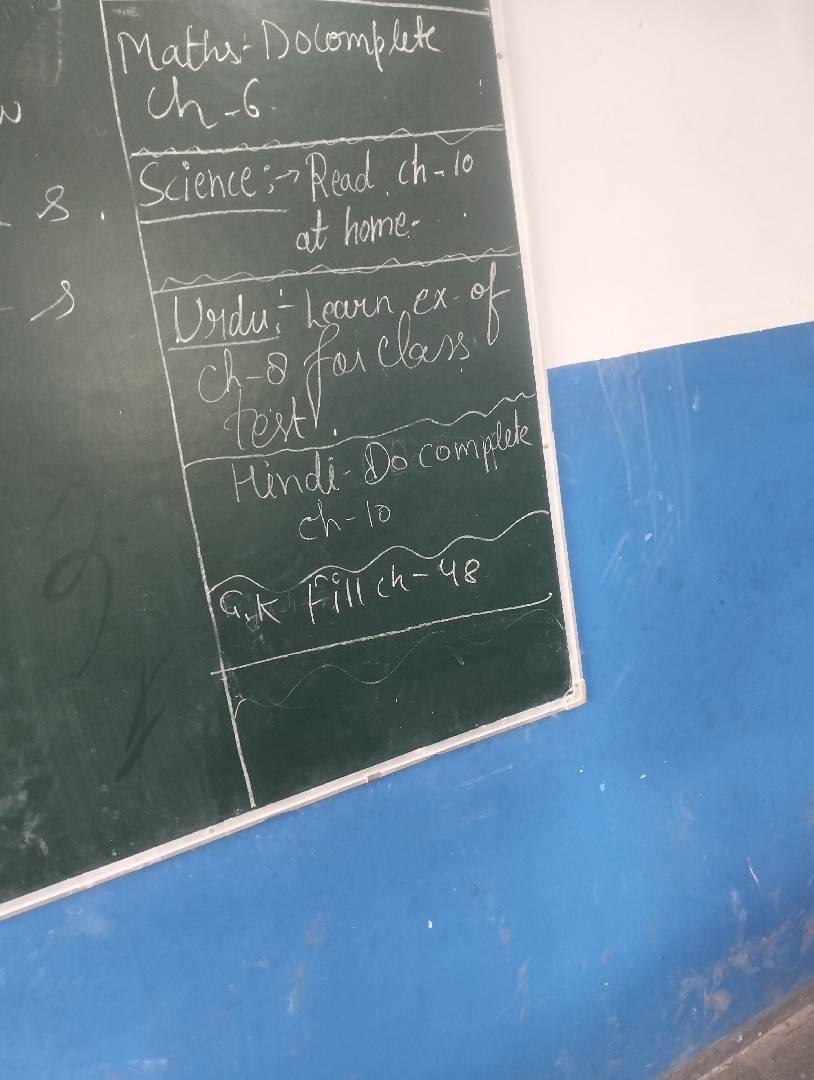 Maths:- Do complete
Ch-6.
Science:→ Read ch-10
at home.
Urdu:- Learn ex. of
ch-8 for class
test.
Hindi- Do complete
ch-10
G.K Fill ch-48
s.
s